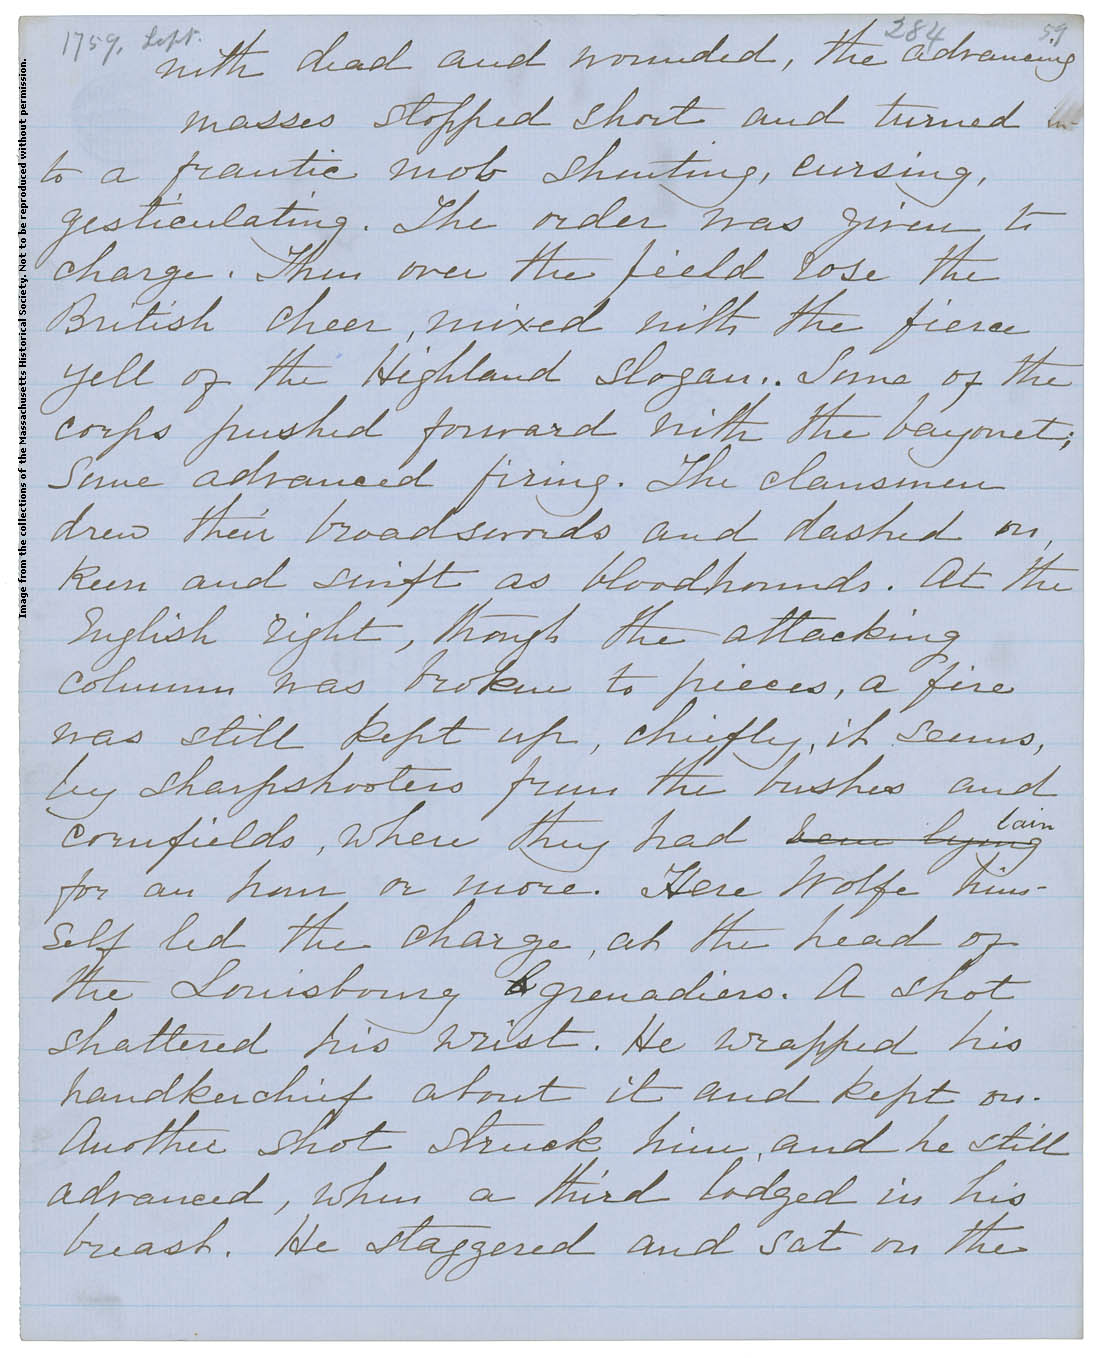 1759, Sept. 284 59
with dead and wounded, the advancing
masses stopped short and turned in-
to a frantic mob shouting, cursing,
gesticulating. The order was given to
charge. Then over the field rose the
British cheer, mixed with the fierce
yell of the Highland slogan.. Some of the
corps pushed forward with the bayonet;
some advanced firing. The clansmen
drew their broadswords and dashed on,
keen and swift as bloodhounds. At the
English right, though the attacking
column was broken to pieces, a fire
was still kept up, chiefly, it seems,
by sharpshooters from the bushes and
cornfields, where they had been lying lain
for an hour or more. Here Wolfe him-
self led the charge, at the head of
the Louisbourg grenadiers. A shot
shattered his wrist. He wrapped his
handkerchief about it and kept on.
Another shot struck him, and he still
advanced, when a third lodged in his
breast. He staggered and sat on the
Image from the collections of the Massachusetts Historical Society. Not to be reproduced without permission.